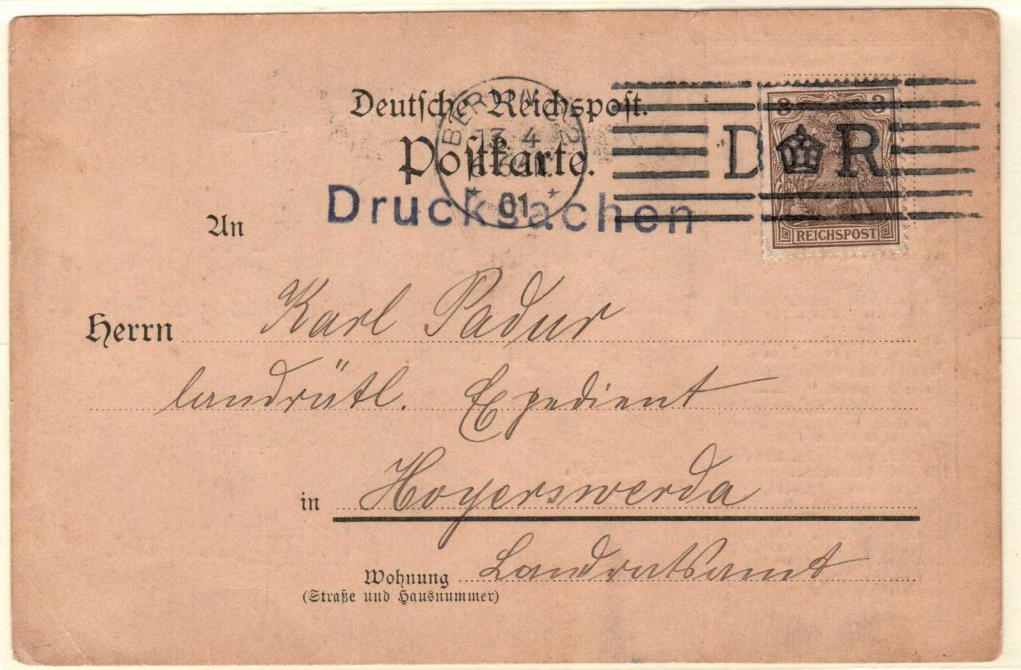 Deutsche Reichspost.
Postkarte.
Drucksachen
BERLIN
13 4
01
D R
3 3
REICHSPOST
An
Herrn Karl Padur
landrätl. Expedient
in Hoyerswerda
Wohnung Landratsamt
(Straße und Hausnummer)